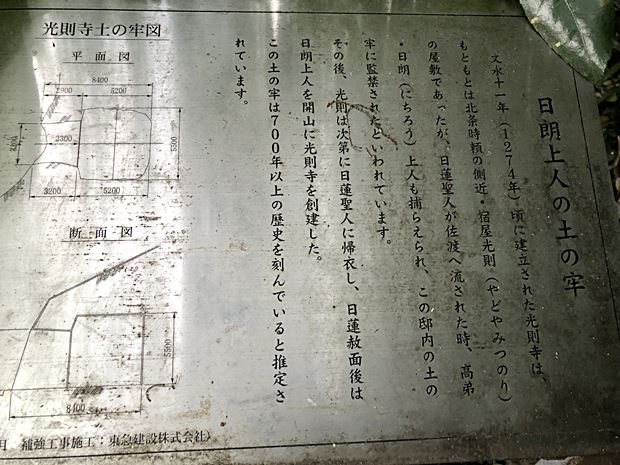 日朗上人の土の牢
文永十一年(1274年)頃に建立された光則寺は、
もともとは北条時頼の側近・宿屋光則(やどやみつのり)
の屋敷であったが、日蓮聖人が佐渡へ流された時、高弟
・日朗(にちろう)上人も捕らえられ、この邸内の土の
牢に監禁されたといわれています。
その後、光則は次第に日蓮聖人に帰衣し、日蓮赦面後は
日朗上人を開山に光則寺を創建した。
この土の牢は700年以上の歴史を刻んでいると推定さ
れています。
光則寺土の牢図
平面図
8400
2900 5200
2300
5500
3200 5200
断面図
5500
8400
日 補強工事施工:東急建設株式会社)